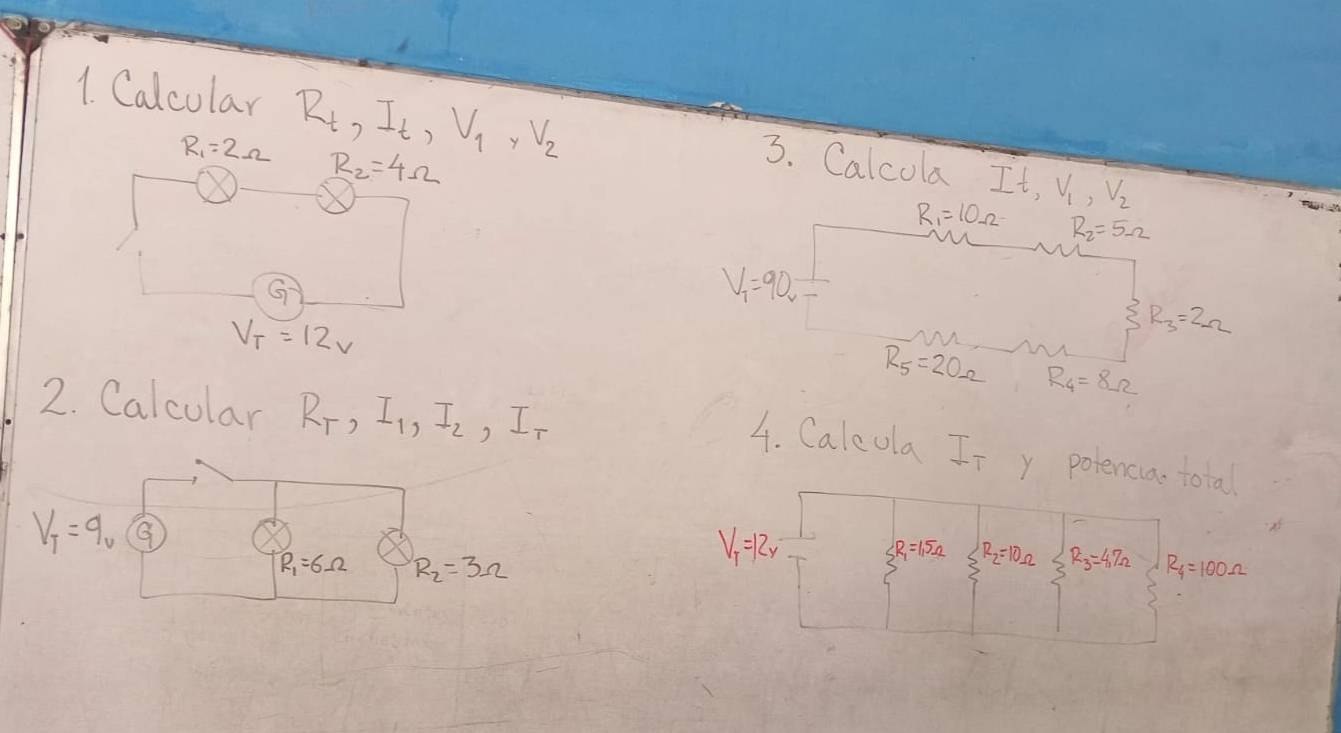 1. Calcular Rt, It, V1 y V2
R1=2Ω
R2=4Ω
G
VT=12v
2. Calcular RT, I1, I2, IT
VT=9v
G
R1=6Ω
R2=3Ω
3. Calcula It, V1, V2
R1=10Ω
R2=5Ω
VT=90v
R3=2Ω
R5=20Ω
R4=8Ω
4. Calcula IT y potencia total
VT=12v
R1=1,5Ω
R2=10Ω
R3=4,7Ω
R4=100Ω